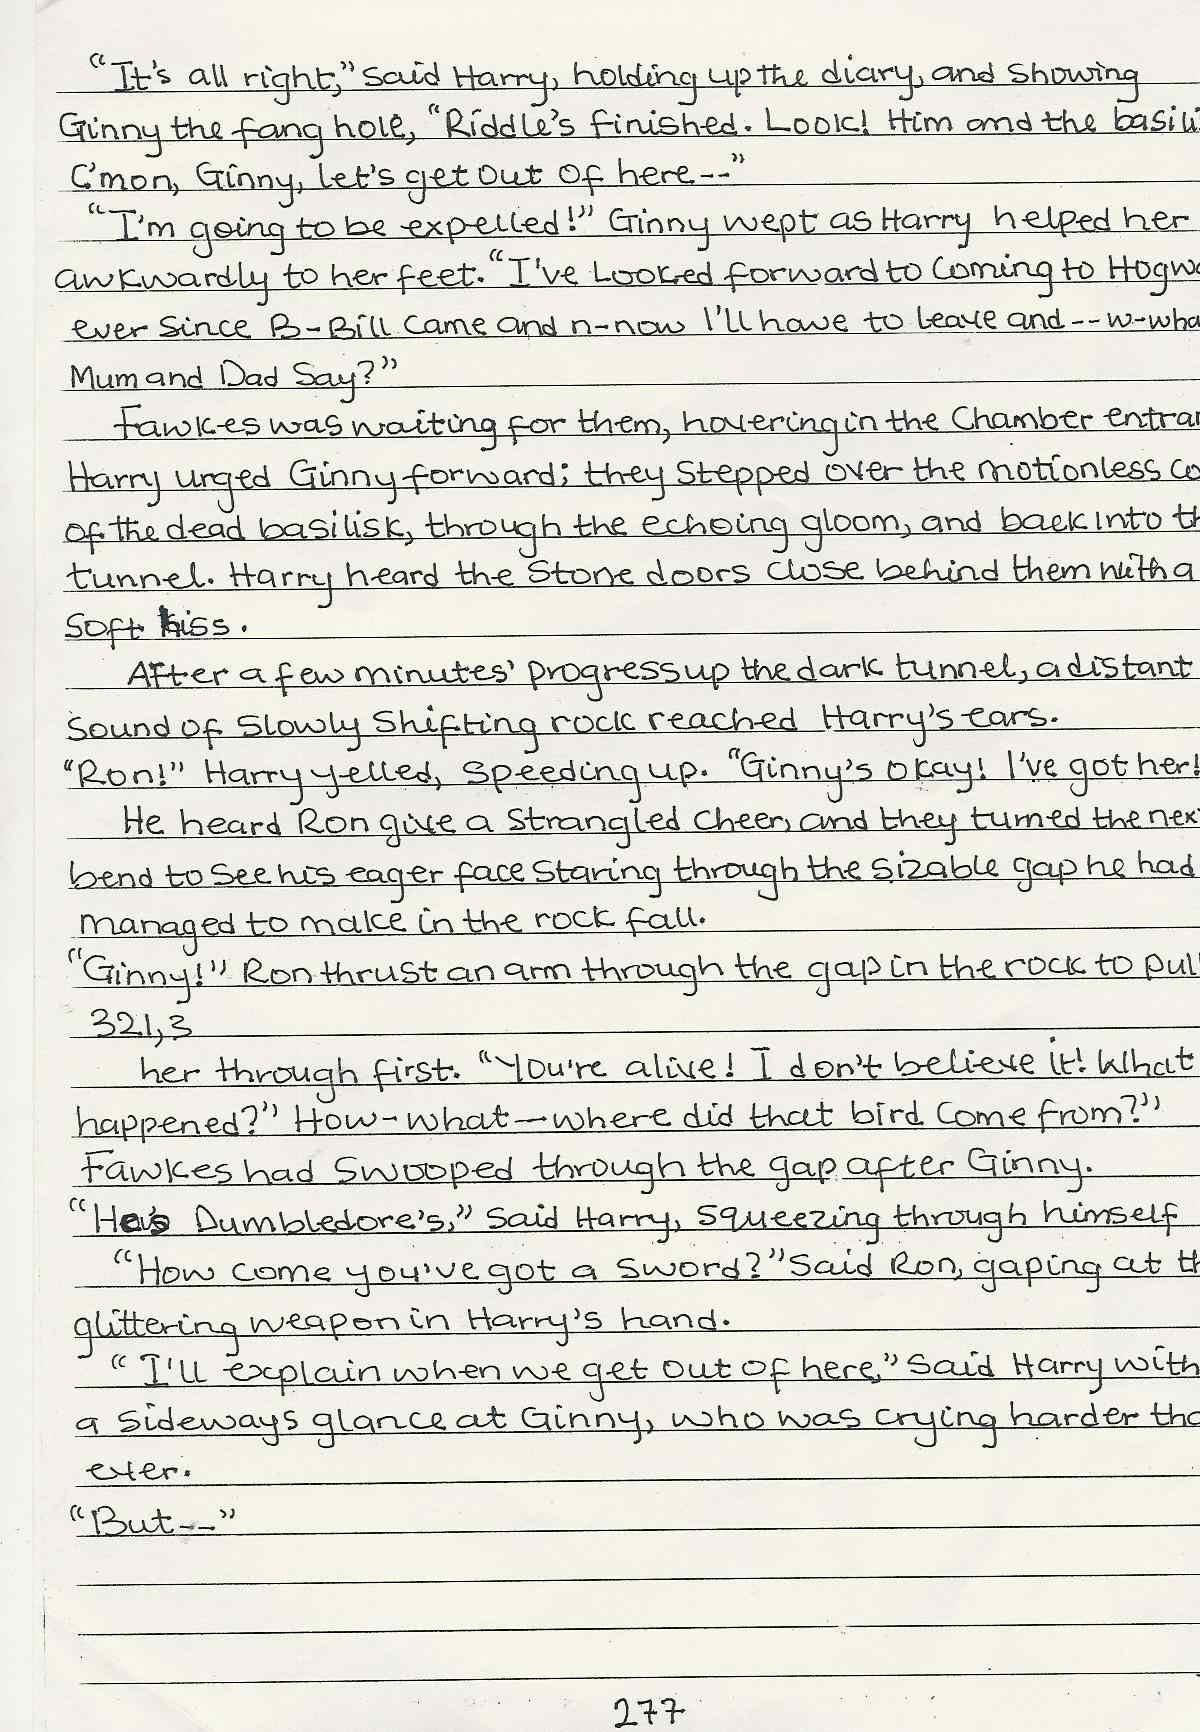 "It's all right," said Harry, holding up the diary, and showing
Ginny the fang hole, "Riddle's finished. Look! Him and the basili
C'mon, Ginny, let's get out of here--"
"I'm going to be expelled!" Ginny wept as Harry helped her
awkwardly to her feet. "I've looked forward to coming to Hogwa
ever since B-Bill came and n-now I'll have to leave and--w-wha
Mum and Dad say?"
Fawkes was waiting for them, hovering in the Chamber entran
Harry urged Ginny forward; they stepped over the motionless co
of the dead basilisk, through the echoing gloom, and back into th
tunnel. Harry heard the stone doors close behind them with a
soft hiss.
After a few minutes' progress up the dark tunnel, a distant
sound of slowly shifting rock reached Harry's ears.
"Ron!" Harry yelled, speeding up. "Ginny's okay! I've got her!
He heard Ron give a strangled cheer, and they turned the nex
bend to see his eager face staring through the sizable gap he had
managed to make in the rock fall.
"Ginny!" Ron thrust an arm through the gap in the rock to pull
321,3
her through first. "You're alive! I don't believe it! What
happened?" How-what—where did that bird come from?"
Fawkes had swooped through the gap after Ginny.
"He's Dumbledore's," said Harry, squeezing through himself
"How come you've got a sword?" said Ron, gaping at th
glittering weapon in Harry's hand.
"I'll explain when we get out of here," said Harry with
a sideways glance at Ginny, who was crying harder tha
ever.
"But--"
277